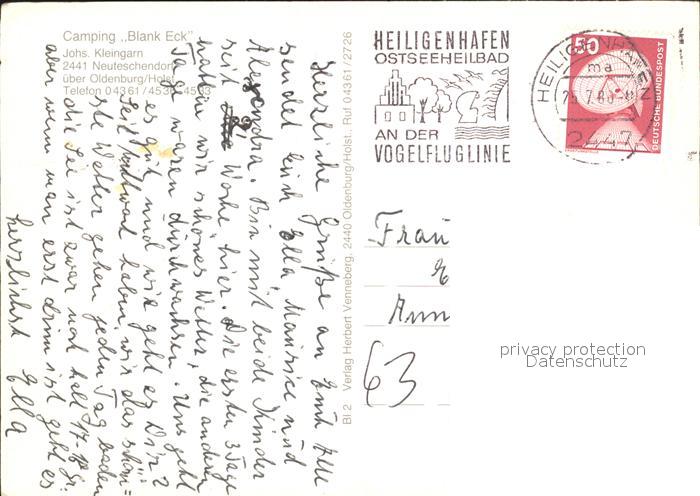 Camping „Blank Eck"
Johs. Kleingarn
2441 Neuteschendorf
über Oldenburg/Holst.
Telefon 0 43 61 / 45
HEILIGENHAFEN
OSTSEEHEILBAD
AN DER
VOGELFLUGLINIE
HEILIGENHAFEN
ma
2447
50
DEUTSCHE BUNDESPOST
Herzliche Grüße an Euch Alle
sendet Euch Ella, Maurice und
Alexandra. Bin mit beide Kinder
seit Woche hier. Die ersten 3 Tage
hatten wir schönes Wetter, die anderen
Tage waren durchwachsen. Uns geht
es gut und wie geht es Dir?
Seit haben wir das schön=
ste Wetter gehen jeden Tag baden
die See ist zwar noch kalt 17- Gr.
aber wenn man erst drin ist geht es
herzlichst Ella
Bl 2 Verlag Herbert Venneberg, 2440 Oldenburg/Holst. Ruf 0 43 61 / 27 26
Frau
Ann
63
privacy protection
Datenschutz